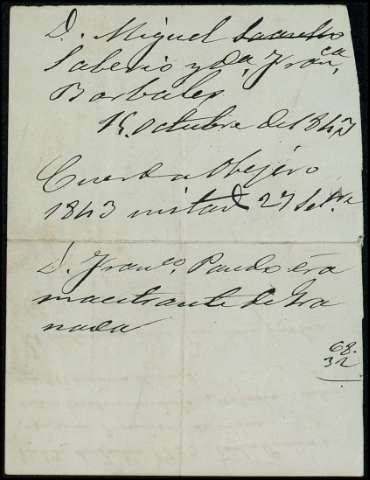 D. Miguel
Saberio y d.a Fran.ca
Barbales
15, octubre de 1843
Cuerda Obejero
1843 mitad 27 Set.
D. Fran.co Pando era
maestrante de Gra
nada
68.
32